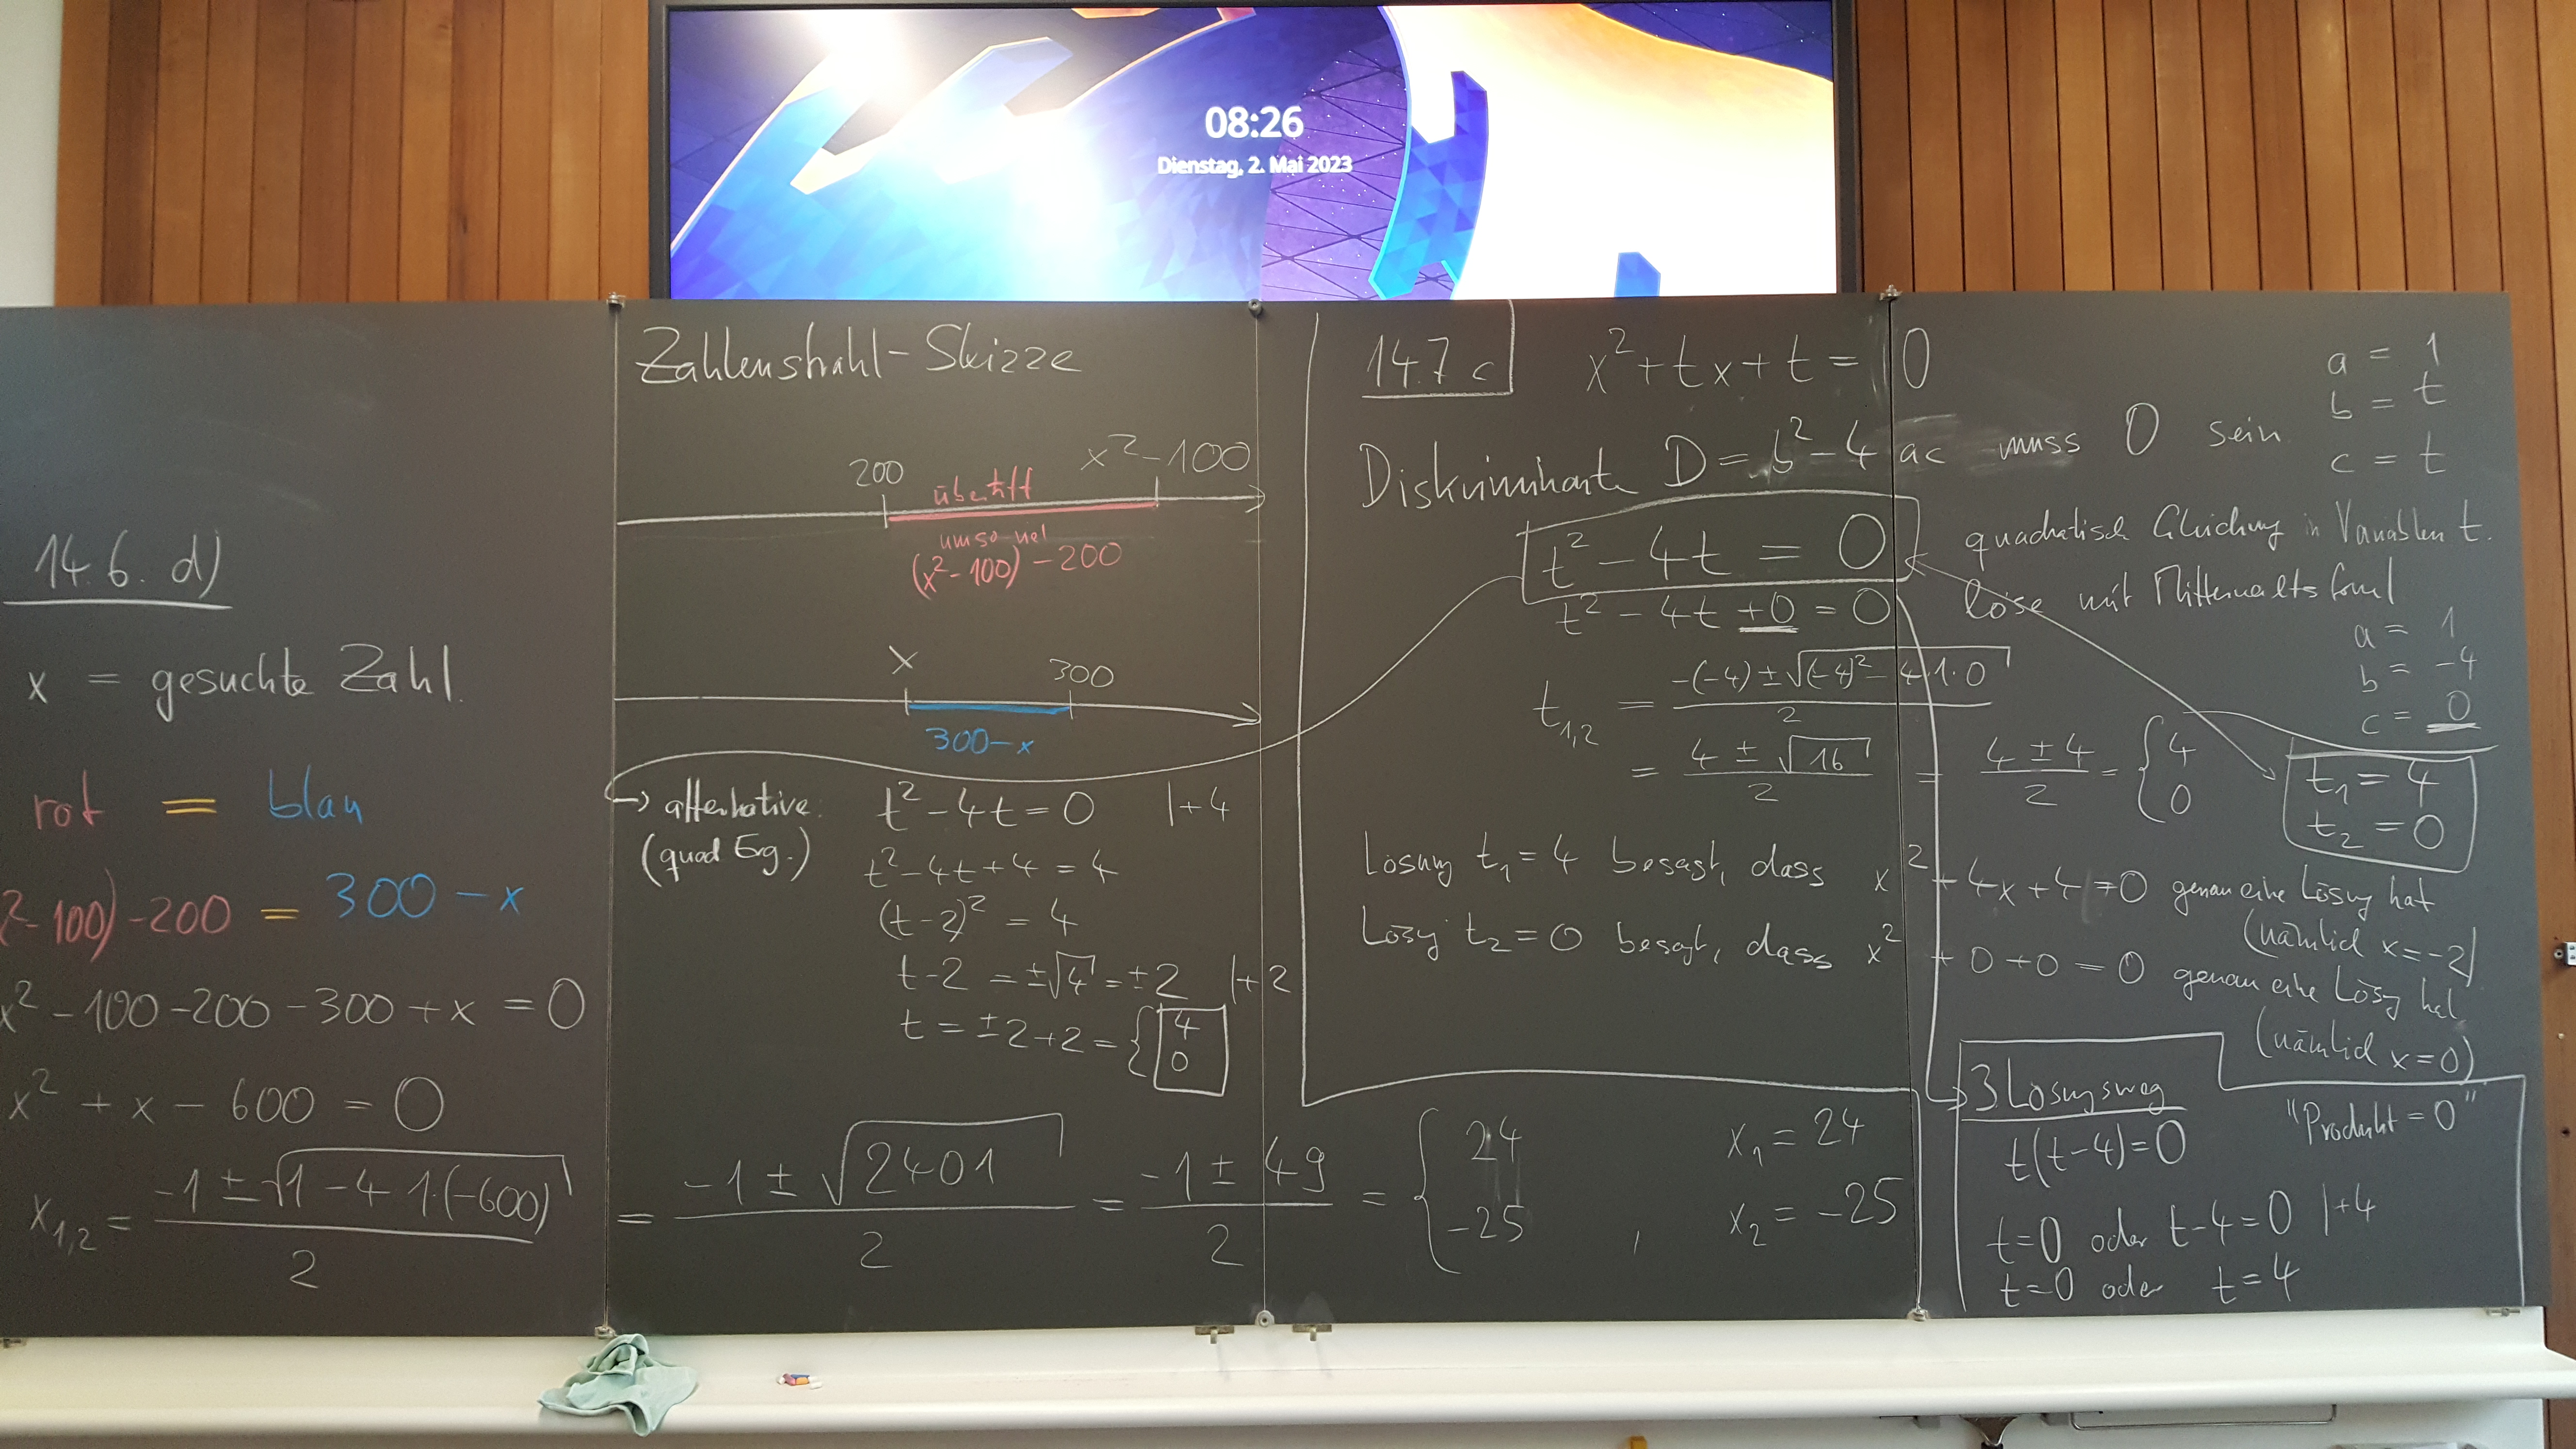 08:26
Dienstag, 2. Mai 2023
14.6. d)
x = gesuchte Zahl.
rot = blau
²-100)-200 = 300-x
x²-100-200-300+x = 0
x² + x - 600 = 0
x₁,₂ = (-1 ± √(1-4·1·(-600)))/2 = (-1 ± √2401)/2 = (-1 ± 49)/2 = { 24 -25 , x₁ = 24 x₂ = -25
Zahlenstrahl-Skizze
200 x²-100
übertriff
umso viel
(x²-100)-200
x 300
300-x
alternative: t²-4t=0 |+4
(quad Erg.) t²-4t+4 = 4
(t-2)² = 4
t-2 = ±√4 = ±2 |+2
t = ±2+2 = { 4 0
14.7 c x²+tx+t = 0
a = 1
b = t
c = t
Diskriminante D = b²-4ac muss 0 sein
t²-4t = 0 quadratisch Gleichung in Variablen t.
t²-4t+0 = 0 löse mit Mitternachtsforml
a = 1
b = -4
c = 0
t₁,₂ = (-(-4)±√((-4)²-4·1·0))/2
= (4±√16)/2 = (4±4)/2 = { 4 0
t₁ = 4
t₂ = 0
Lösung t₁=4 besagt, dass x²+4x+4=0 genau eine Lösung hat
(nämlich x=-2)
Lösg t₂=0 besagt, dass x²+0+0=0 genau eine Lösg hat
(nämlich x=0)
3 Lösungsweg "Produkt = 0"
t(t-4)=0
t=0 oder t-4=0 |+4
t=0 oder t=4